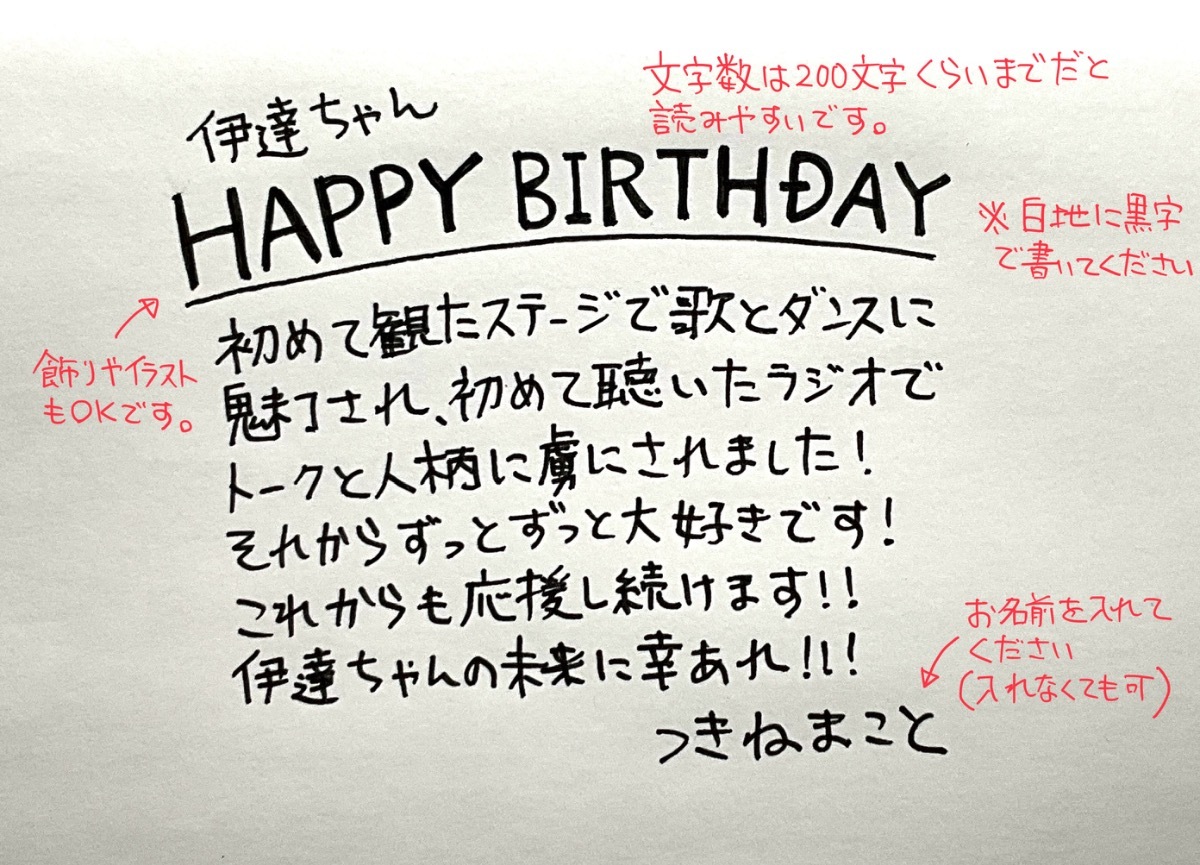 文字数は200文字くらいまでだと
読みやすいです。
伊達ちゃん
HAPPY BIRTHDAY
※白地に黒字
で書いてください
飾りやイラスト
もOKです。
初めて観たステージで歌とダンスに
魅了され、初めて聴いたラジオで
トークと人柄に虜にされました！
それからずっとずっと大好きです！
これからも応援し続けます！！
伊達ちゃんの未来に幸あれ！！！
お名前を入れて
ください
(入れなくても可)
つきねまこと